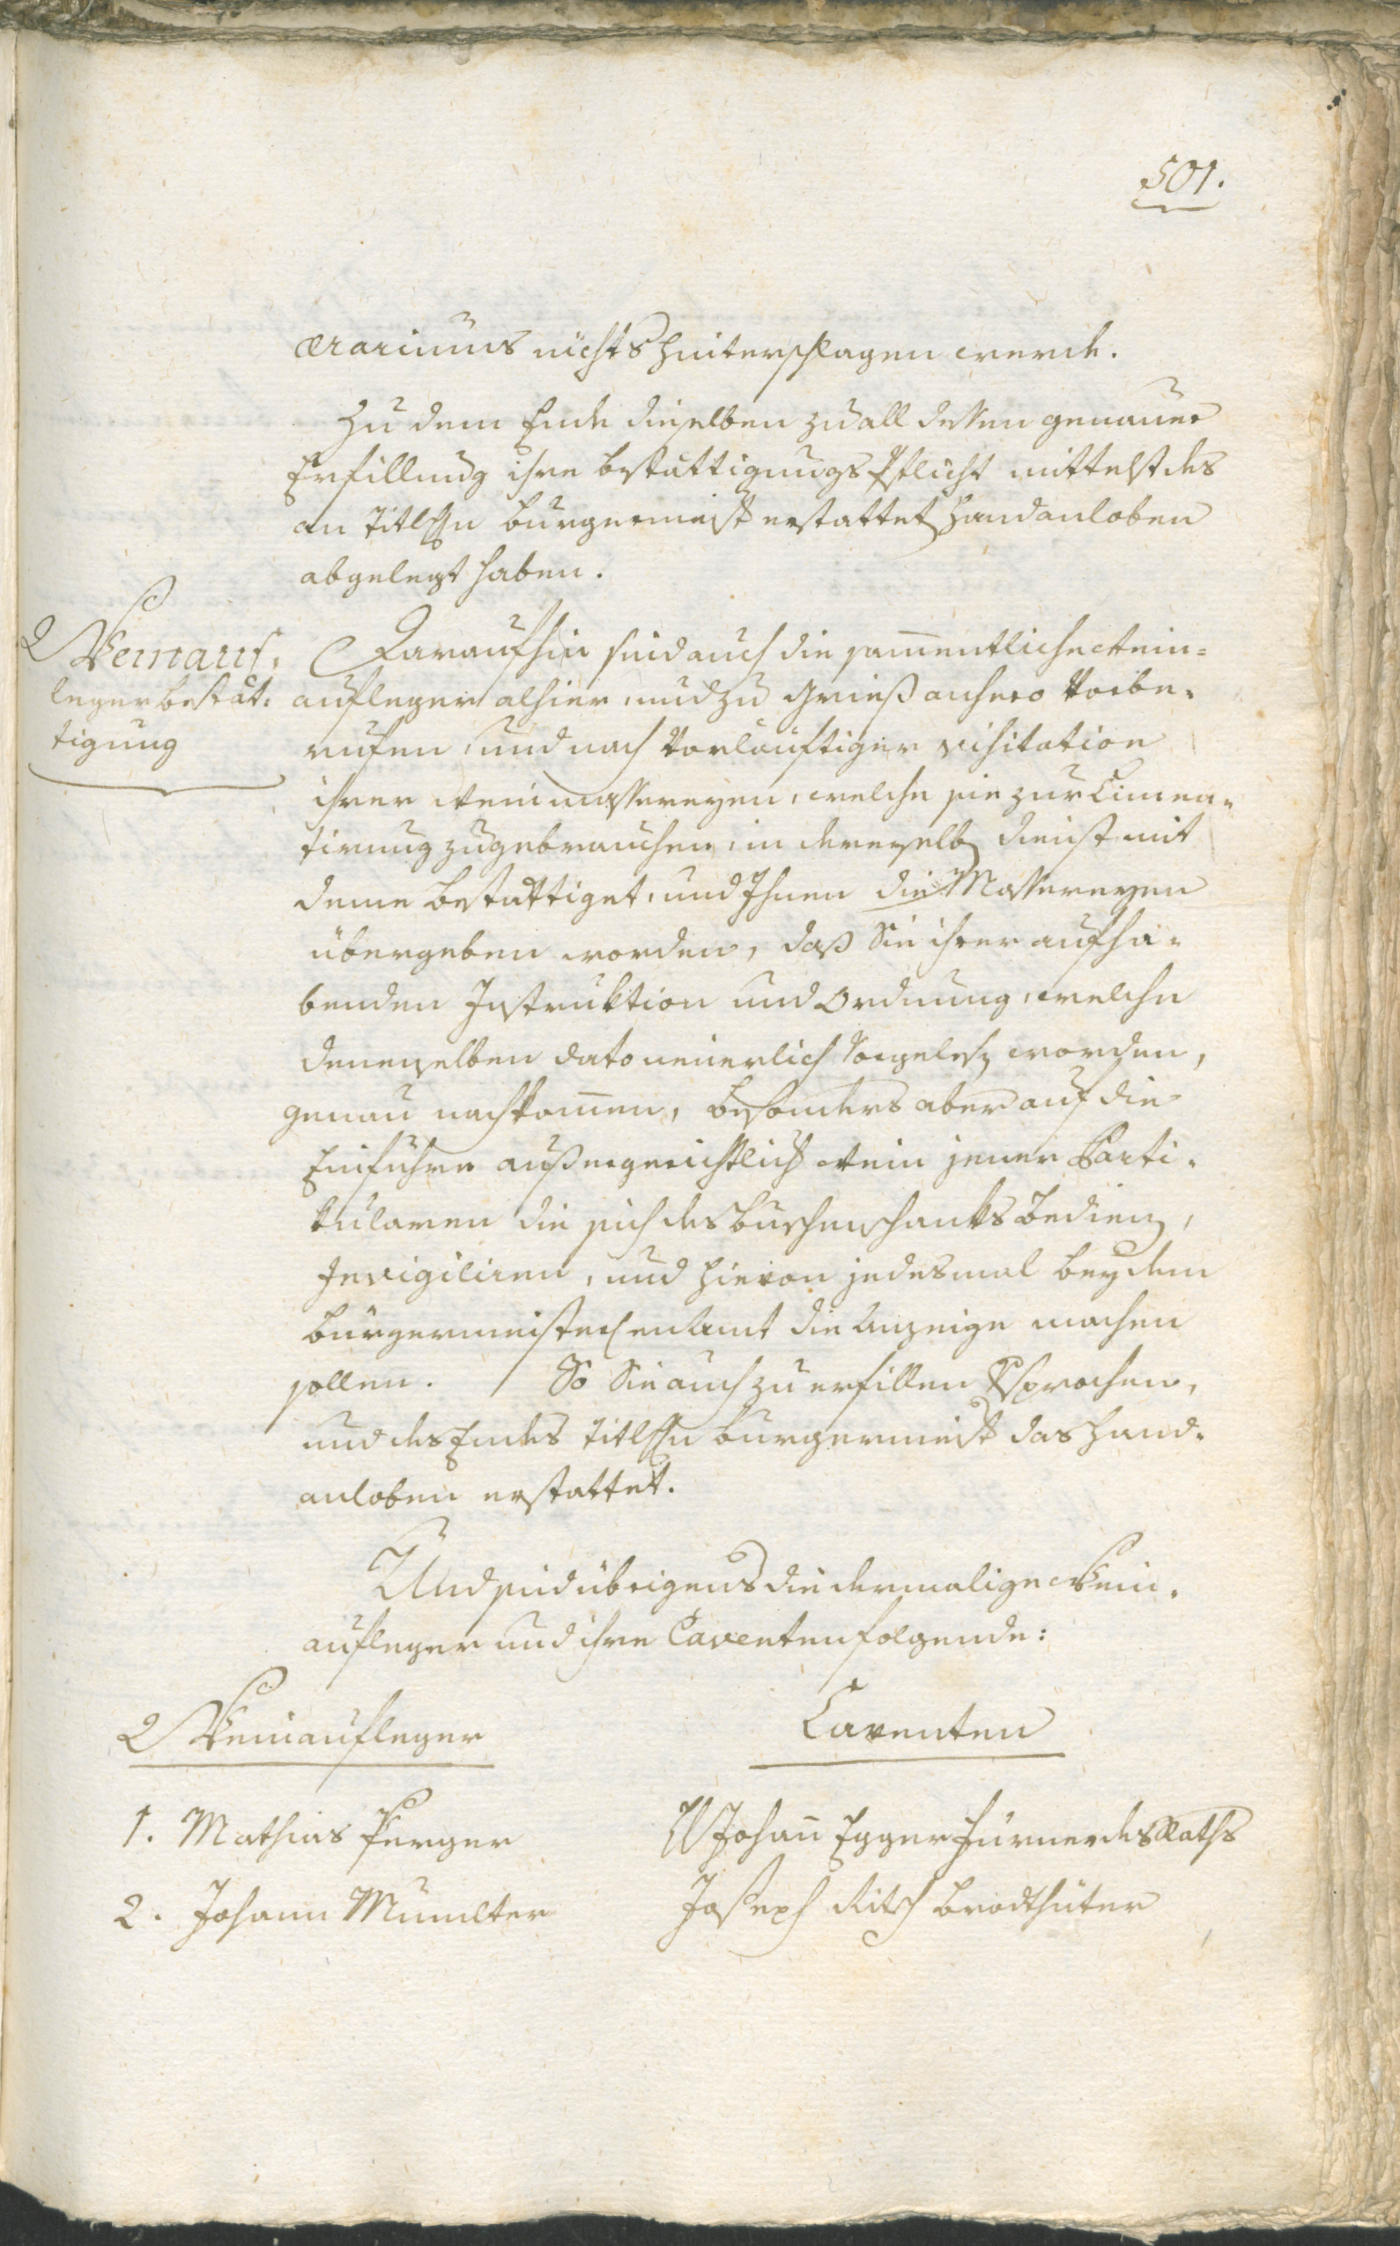 501.
ærariums nichts hinterschlagen werde.
Zu dem Ende dieselben zu all dessen genauer
Erfillung ihre bestättigungs Pflicht mittelst des
an Titl Hn Burgermeist erstattet Handanloben
abgelegt haben.
Weinauf-
leger bestät-
tigung
Daraufhin sind auch die sam̅entliche Wein=
aufleger alhier, und zu Grieß anhero vorbe-
rufen, und nach vorläuftiger visitation
ihrer Weinmassereyen, welche sie zur Cimen-
tirung zugebrauchen, in deroselb dienst mit
deme bestättiget, und Ihnen die Massereyen
übergeben worden, daß Sie ihrer aufha-
benden Instruktion und Ordnung, welche
denenselben dato neuerlich vorgeleß worden,
genau nachkom̅en, besonders aber auf die
Einfuhre außergerichtlich Wein jener Parti-
kularen die sich des Buschenschanks bedien,
Invigiliren, und hievon jedesmal bey dem
Burgermeisterschenamt die Anzeige machen
sollen. So Sie auch zu erfillen Vsprochen,
und des Endes Titl Hn Burgermeist das Hand-
anloben erstattet.
Und sind übrigens die dermaligen Wein-
aufleger und ihre Caventen folgende:
Weinaufleger
Caventen
1. Mathias Perger
H Johan̅ Egger Fürner des Raths
2. Johann Mumlter
Joseph Ritsch brodhüter